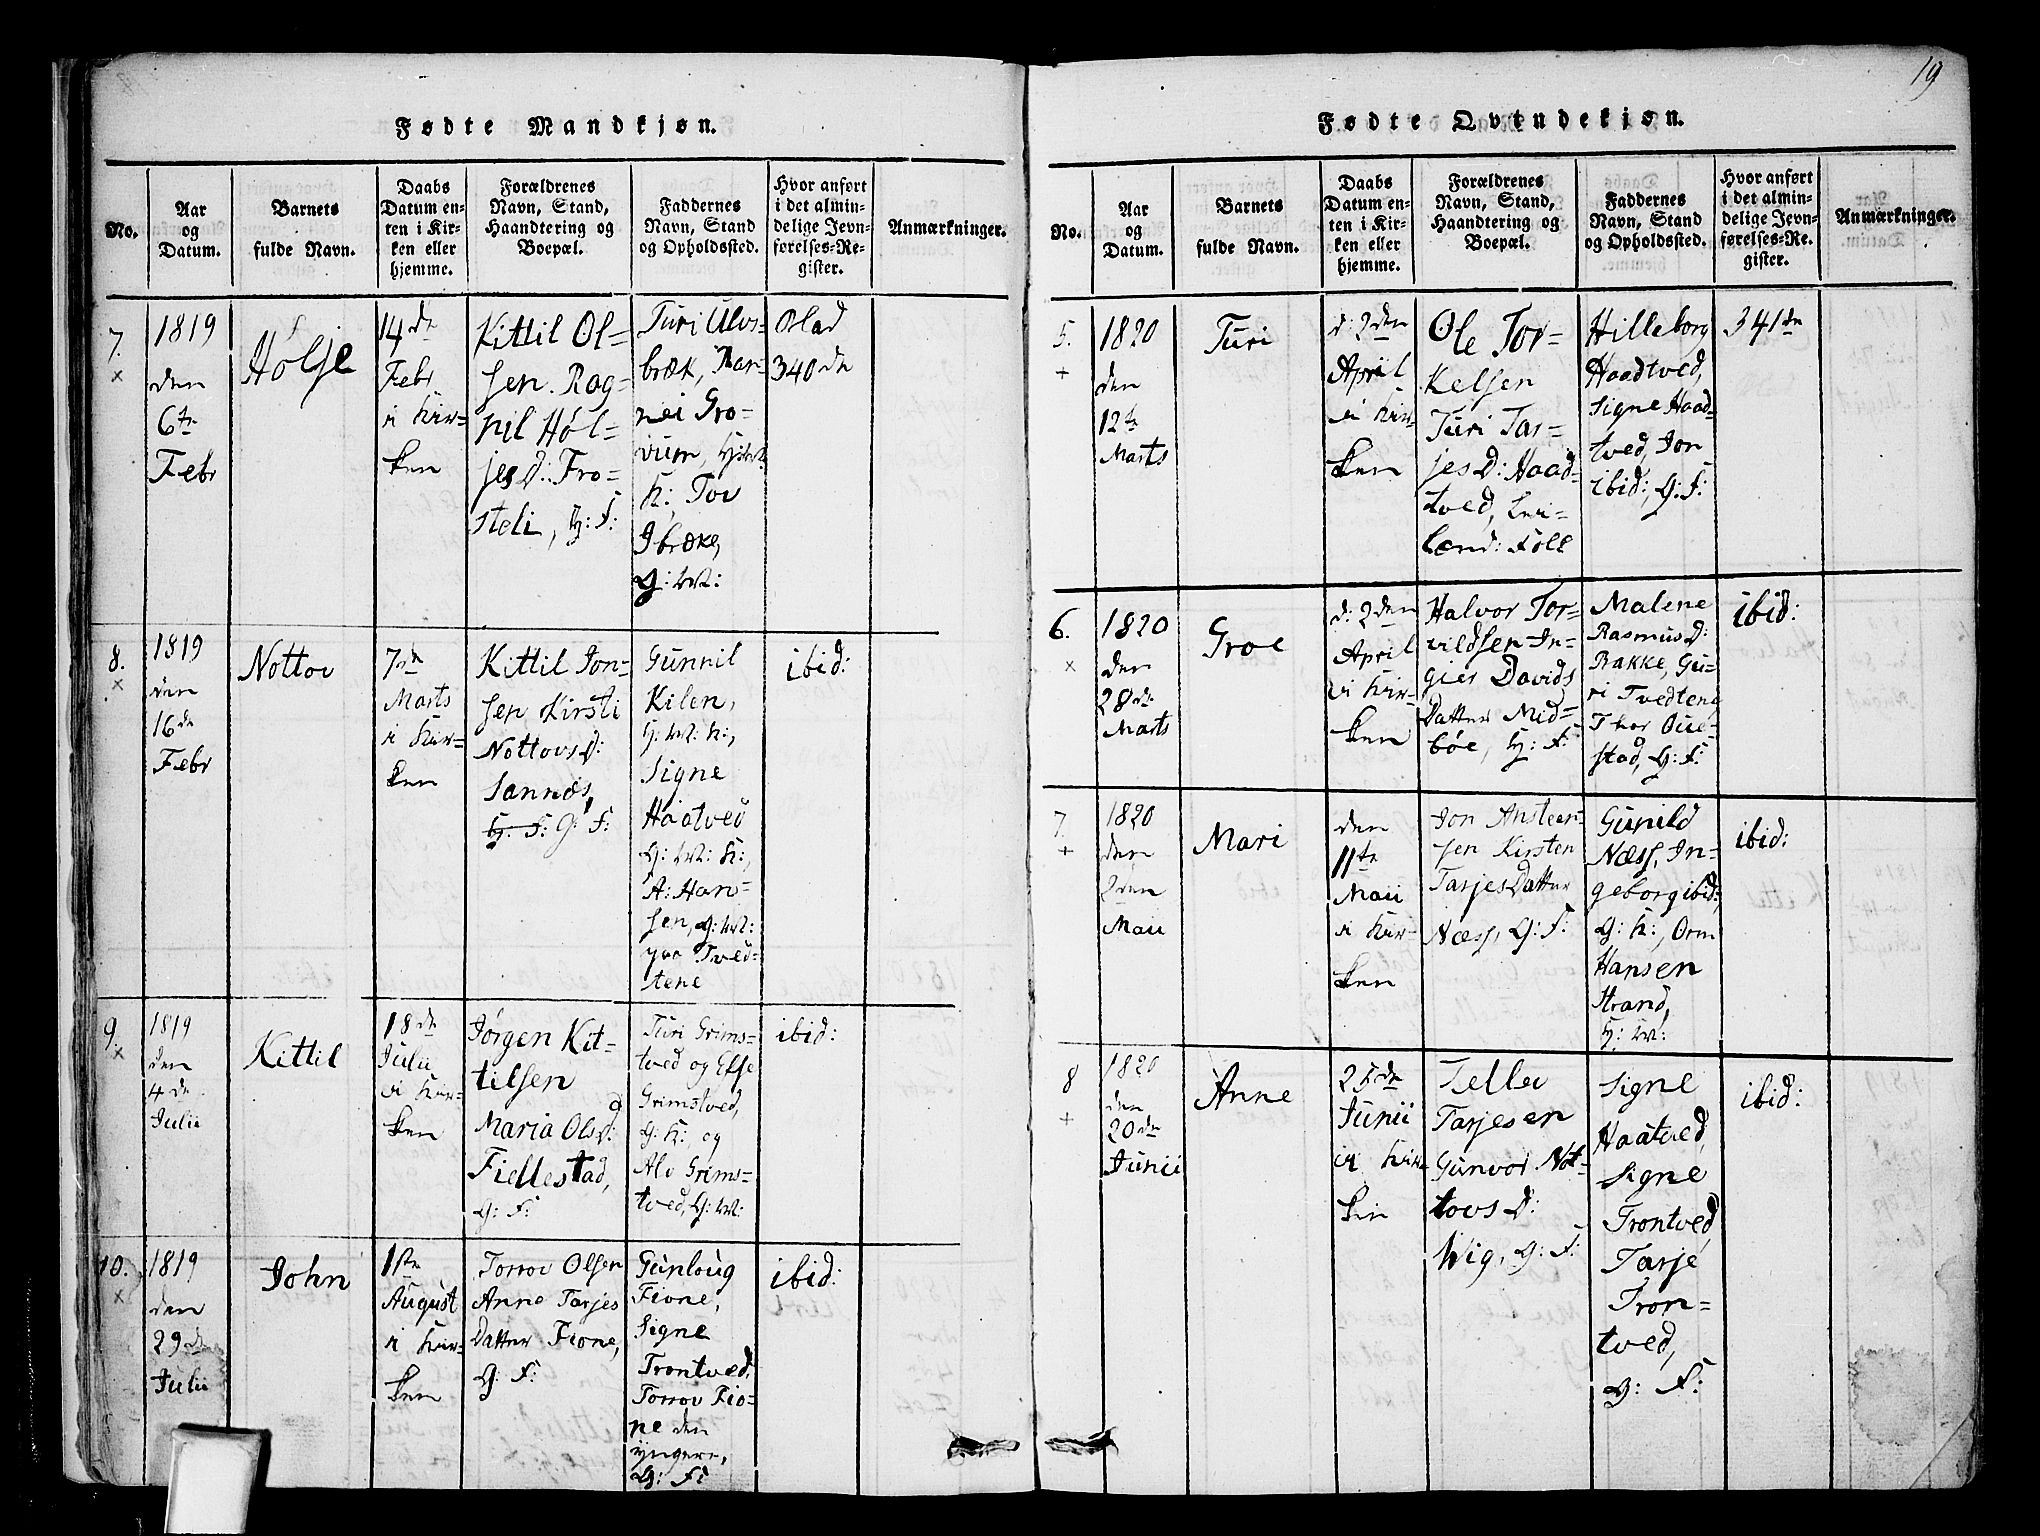 19
Fødte Mandkjøn.
No.
Aar
og
Datum.
Barnets
fulde Navn.
Daabs
Datum en-
ten i Kir-
ken eller
hjemme.
Forældrenes
Navn, Stand,
Haandtering og
Boepæl.
Faddernes
Navn, Stand
og Opholdssted.
Hvor anført
i det almin-
delige Jevn-
førelses-Re-
gister.
Anmærkninger.
7.
×
1819
den
6te
Febr
Holje
14de
Febr
i Kir-
ken
Kittil Ol-
sen. Rag-
nil Hol-
jesD: Fro-
steli, H: F:
Turi Ulvs-
bræk, Ran-
nei Gro-
vum,
K:, Tov
Ibræke,
G:
Blad
340de
8.
×
1819
den
16de
Febr
Nottov
7de
Marts
i Kir-
ken
Kittil Jon-
sen Kirsti
NottovsD:
Sannæs,
G: F:
Gunnil
Kilen,
Signe
Haatved
G: K:,
A: Han-
sen, G:
Tved-
tene
ibid:
9.
×
1819
den
4de
Julii
Kittil
18de
Julii
i Kir-
ken
Jørgen Kit-
tilsen
Maria OlsD:
Fiellestad,
G: F:
Turi Grims-
tved og
Grimstved,
G: K:, og
Alv Grims-
tved, G:
ibid:
10.
×
1819
den
29de
Julii
John
1ste
August
i Kir-
ken
Torrov Olsen
Anne Tarjes
Datter Fione,
G: F:
Gunloug
Fione,
Signe
Trontved,
Torrov Fio-
ne den
yngere,
G: F:
ibid:
Fødte Qvindekjøn.
No.
Aar
og
Datum.
Barnets
fulde Navn.
Daabs
Datum en-
ten i Kir-
ken eller
hjemme.
Forældrenes
Navn, Stand,
Haandtering og
Boepæl.
Faddernes
Navn, Stand
og Opholdssted.
Hvor anført
i det almin-
delige Jevn-
førelses-Re-
gister.
Anmærkninger.
5.
+
1820
den
12te
Marts
Turi
d: 2den
April
i Kir-
ken
Ole Tor-
kelsen
Turi Tar-
jesD: Haad-
tved,
Hilleborg
Haadtved,
Signe Haad-
tved, Jon
ibid:, G: F:
341de
6.
×
1820
den
28de
Marts
Groe
d: 2den
April
i Kir-
ken
Halvor Tor-
vildsen In-
gier Davids
Datter Mid-
bøe, H: F:
Malene
RasmusD:
Bakke, Gu-
ri Tvedtene
Thor Que-
stad, G: F:
ibid:
7.
+
1820
den
2den
Maii
Mari
den
11te
Maii
i Kir-
ken
Jon Ansteen-
sen Kirsten
TarjesDatter
Næss, G: F:
Gunild
Næss, In-
geborg ibid:,
G: K:, Orm
Hansen
Strand,
ibid:
8
+
1820
den
20de
Junii
Anne
25de
Junii
i Kir-
ken
Tellev
Tarjesen
Gunvor Not-
tovsD:
Wig, G: F:
Signe
Haatved,
Signe
Trontved,
Tarje
Tron-
tved,
G: F:
ibid: